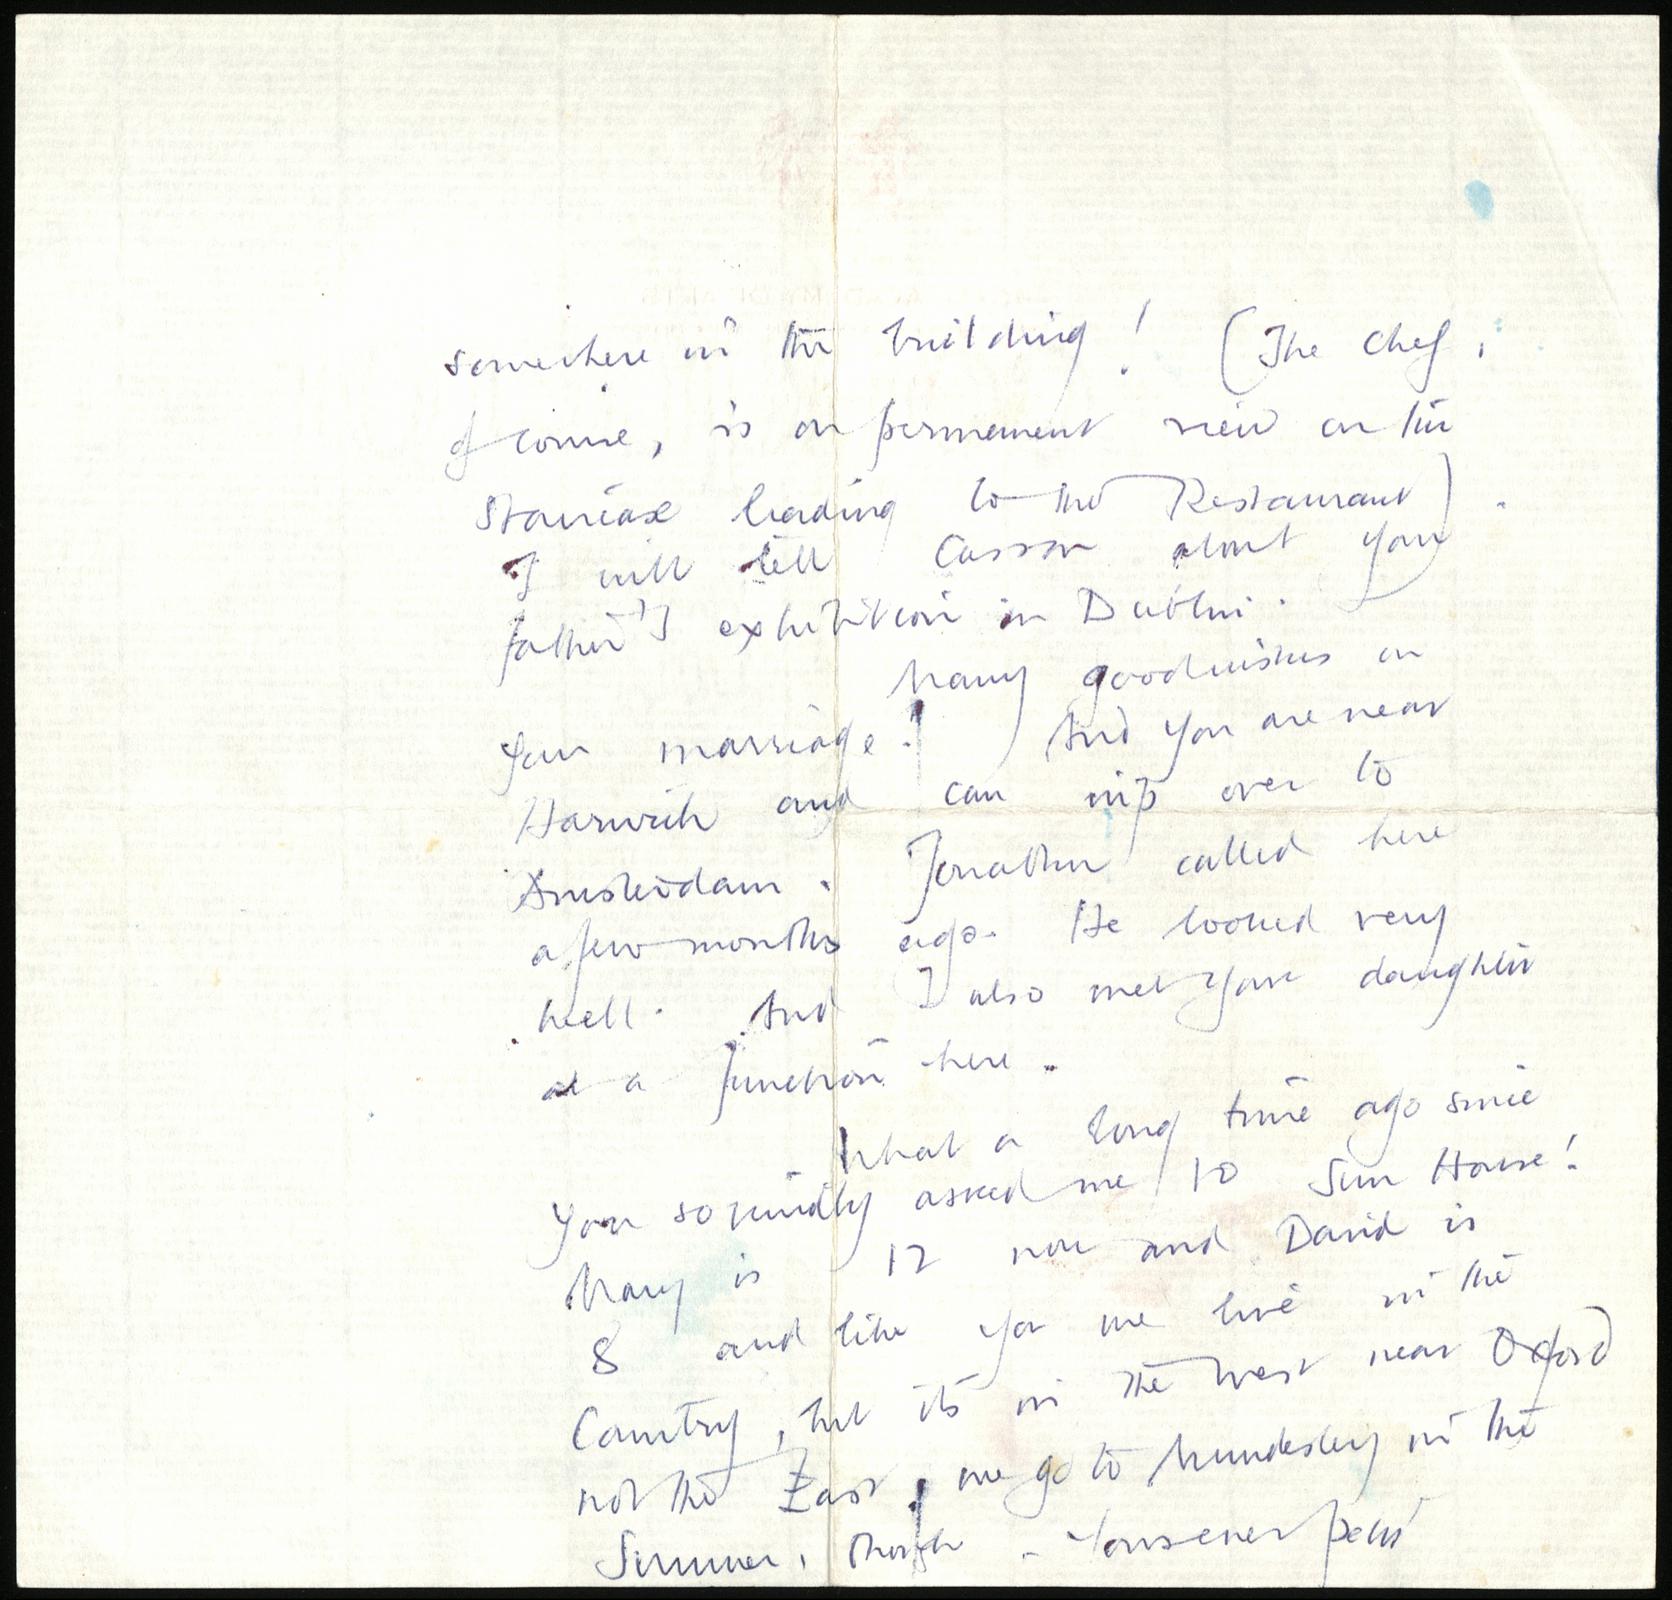 somewhere in the building! (The Chef,
of course, is on permanent view on the
staircase leading to the Restaurant).
I will tell Casson about your
father's exhibition in Dublin.
Many good wishes on
your marriage! And you are near
Harwich and can nip over to
Amsterdam. Jonathan called here
a few months ago. He looked very
well. And I also met your daughter
at a function here.
What a long time ago since
you so kindly asked me to Sun House!
Mary is 12 now and David is
8 and like you we live in the
Country, but it's in the West near Oxford
not the East, we go to Mundesley in the
Summer, though - Yours ever